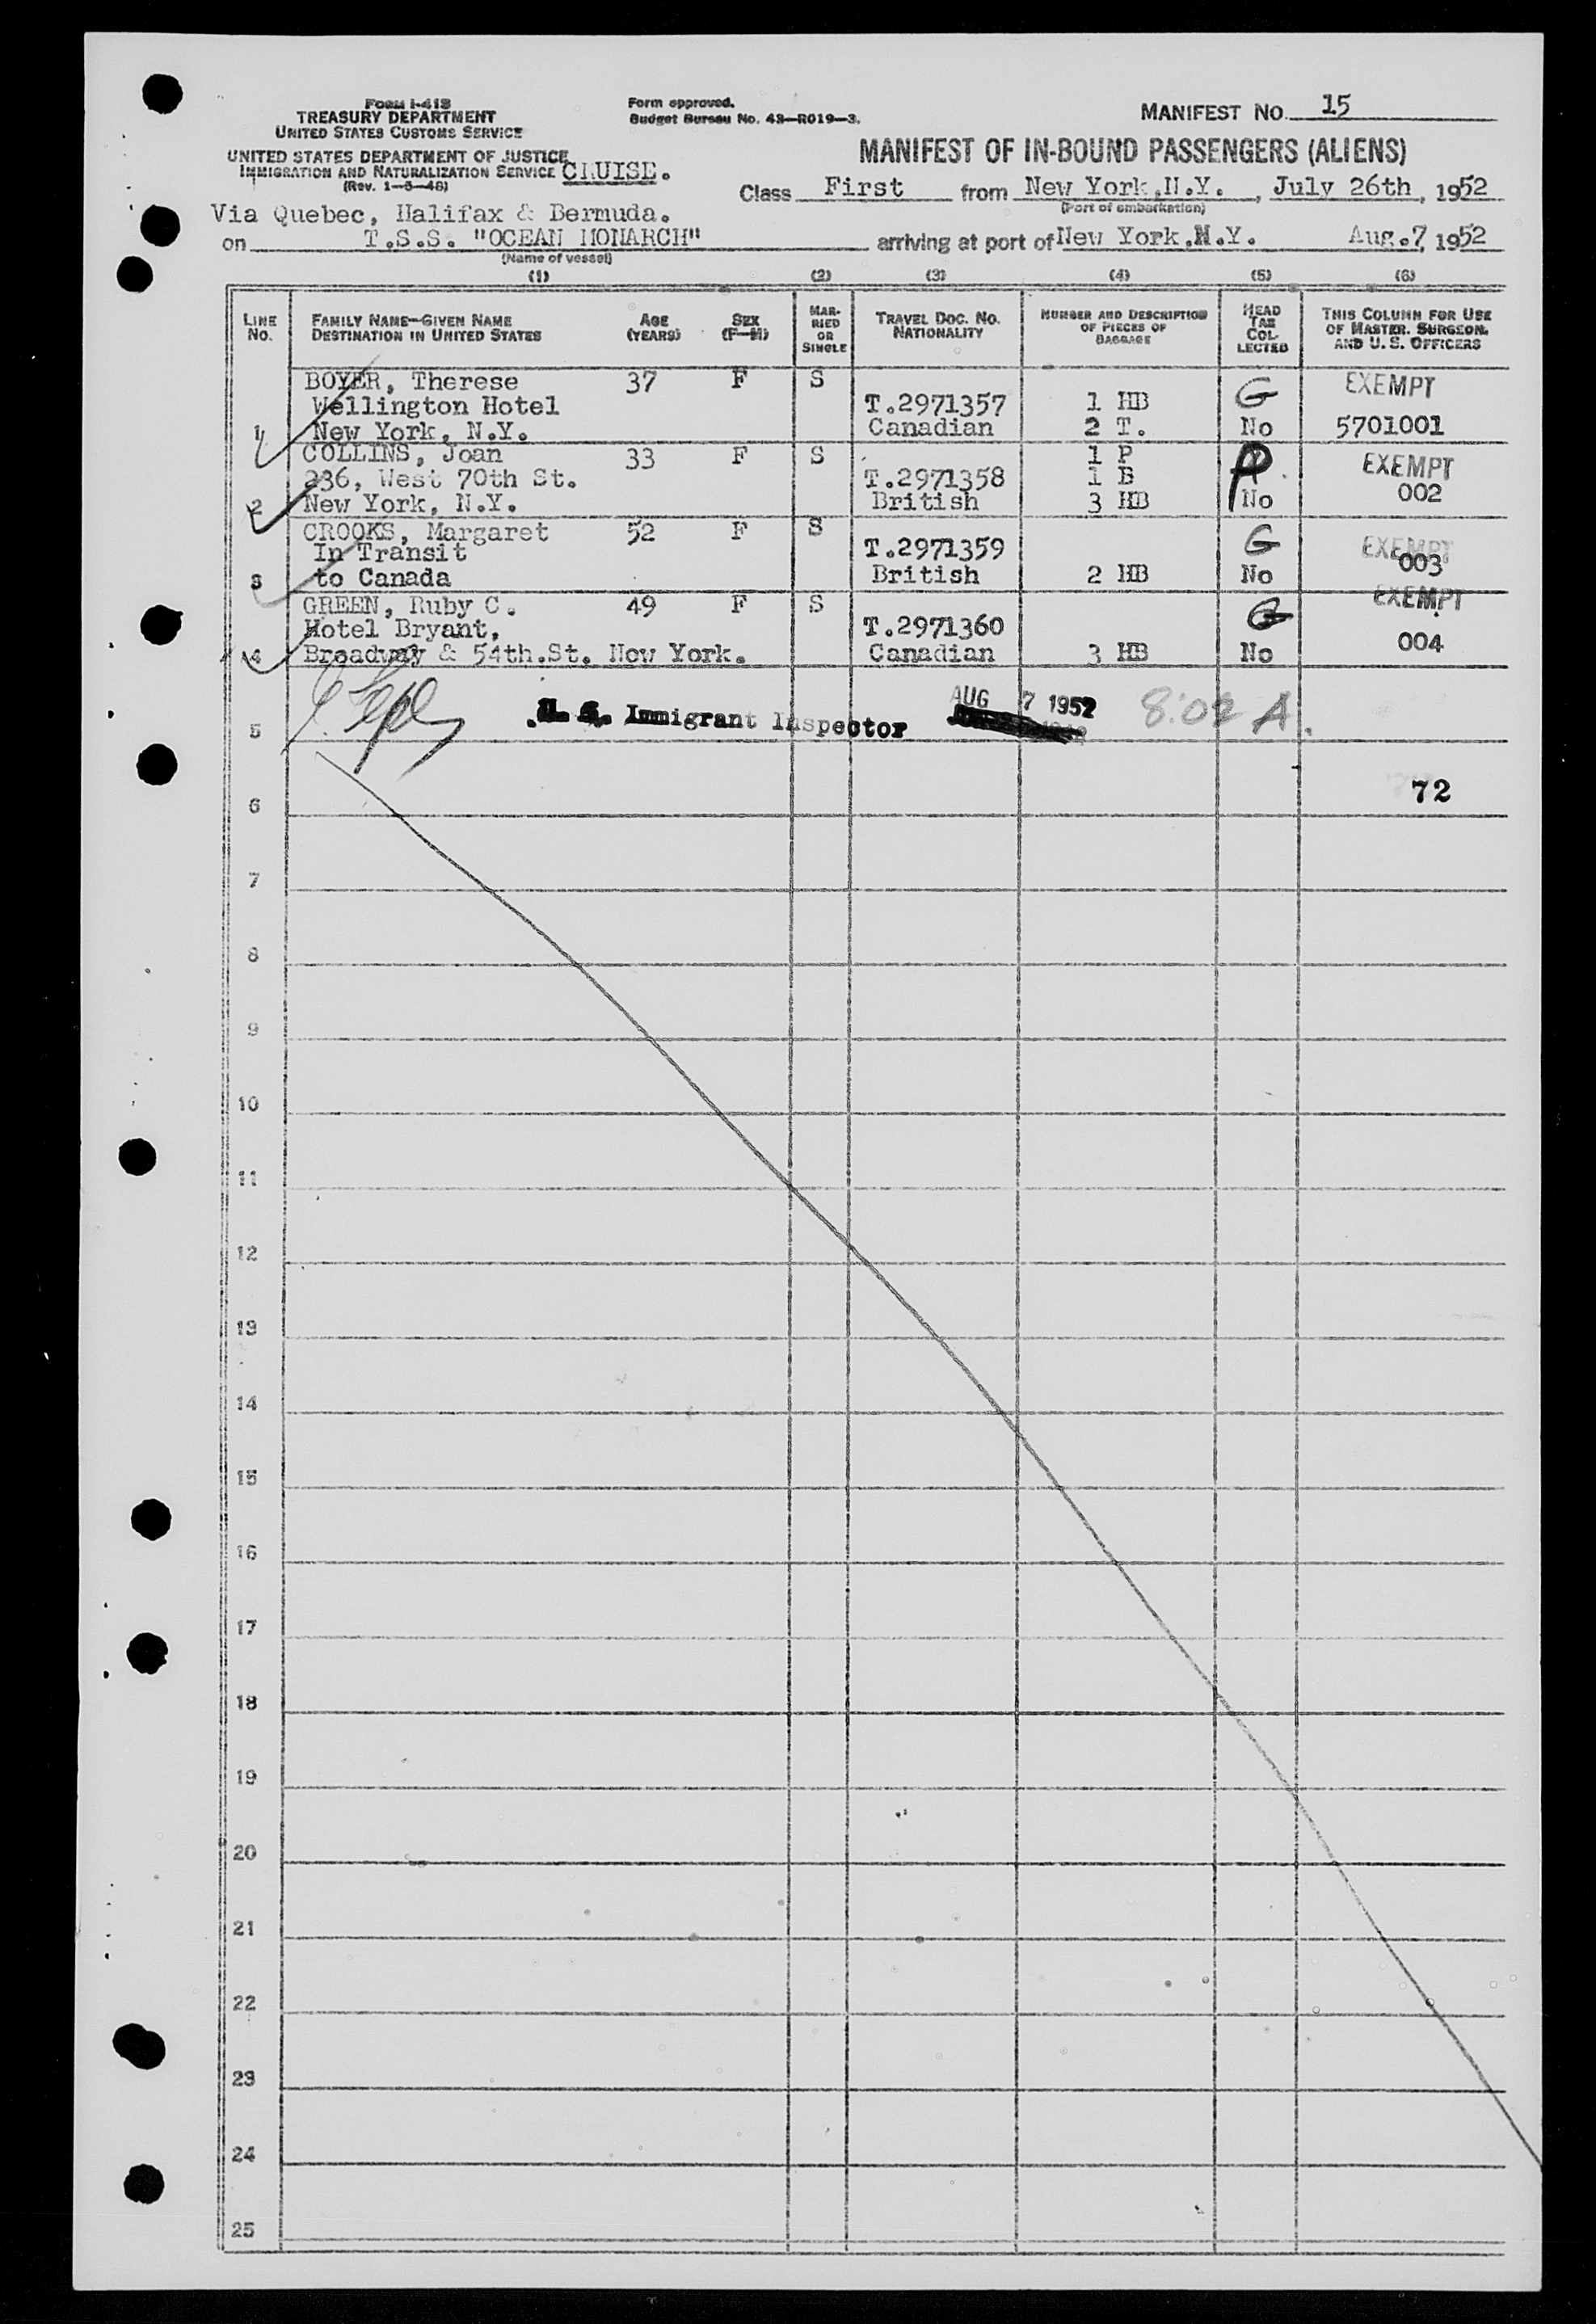 Form I-418
TREASURY DEPARTMENT
UNITED STATES CUSTOMS SERVICE
UNITED STATES DEPARTMENT OF JUSTICE
IMMIGRATION AND NATURALIZATION SERVICE CRUISE.
(Rev. 1-5-48)
Form approved.
Budget Bureau No. 43-R019-3.
MANIFEST NO. 15
MANIFEST OF IN-BOUND PASSENGERS (ALIENS)
Class First from New York,N.Y., July 26th, 1952
(Port of embarkation)
Via Quebec, Halifax & Bermuda.
on T.S.S. "OCEAN MONARCH" arriving at port of New York.N.Y. Aug.7, 1952
(Name of vessel)
(1) (2) (3) (4) (5) (6)
LINE NO.
FAMILY NAME—GIVEN NAME
DESTINATION IN UNITED STATES
AGE (YEARS)
SEX (F-M)
MARRIED OR SINGLE
TRAVEL DOC. NO. NATIONALITY
NUMBER AND DESCRIPTION OF PIECES OF BAGGAGE
HEAD TAX COLLECTED
THIS COLUMN FOR USE OF MASTER, SURGEON, AND U. S. OFFICERS
BOYER, Therese 37 F S EXEMPT
Wellington Hotel T.2971357 1 HB G
1 New York, N.Y. Canadian 2 T. No 5701001
COLLINS, Joan 33 F S 1 P EXEMPT
236, West 70th St. T.2971358 1 B
2 New York, N.Y. British 3 HB No 002
CROOKS, Margaret 52 F S
In Transit T.2971359 G EXEMPT
3 to Canada British 2 HB No 003
GREEN, Ruby C. 49 F S EXEMPT
Hotel Bryant, T.2971360 G
4 Broadway & 54th.St. New York. Canadian 3 HB No 004
5 U. S. Immigrant Inspector AUG 7 1952 8:02 A.
72
6
7
8
9
10
11
12
13
14
15
16
17
18
19
20
21
22
23
24
25